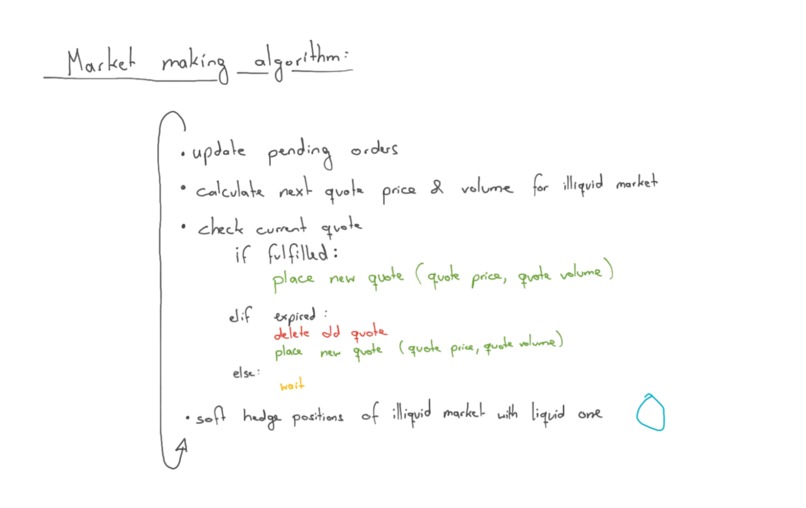 Market making algorithm:
• update pending orders
• calculate next quote price & volume for illiquid market
• check current quote
if fulfilled:
place new quote (quote price, quote volume)
elif expired:
delete old quote
place new quote (quote price, quote volume)
else:
wait
• soft hedge positions of illiquid market with liquid one